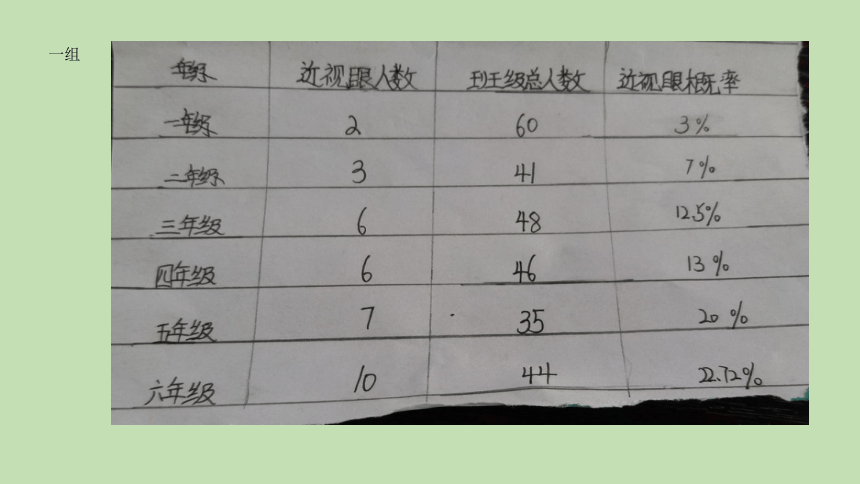 一组
年级 近视眼人数 班级总人数 近视眼概率
一年级 2 60 3%
二年级 3 41 7%
三年级 6 48 12.5%
四年级 6 46 13%
五年级 7 35 20%
六年级 10 44 22.72%